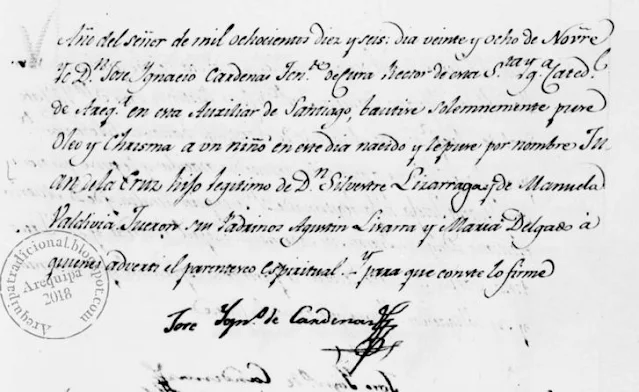 Año del señor de mil ochocientos diez y seis: dia veinte y ocho de Novre
Yo Dn Jose Ygnacio Cardenas Tente de Cura Rector de esta Sta Yga Catedl
de Areqa en esta Auxiliar de Santiago, bautise solemnemente puse
Oleo y Chrisma a un niño en este dia nacido y le puse por nombre Ju
an de la Cruz hijo legitimo de Dn Silvestre Lizarraga y de Manuela
Valdivia. Fueron sus Padrinos Agustin Lizarra y Maria Delgado à
quienes adverti el parentesco espiritual. Y para que conste lo firme
Jose Ygno de Cardenas
Arequipatradicional.blogspot.com
Arequipa
2018